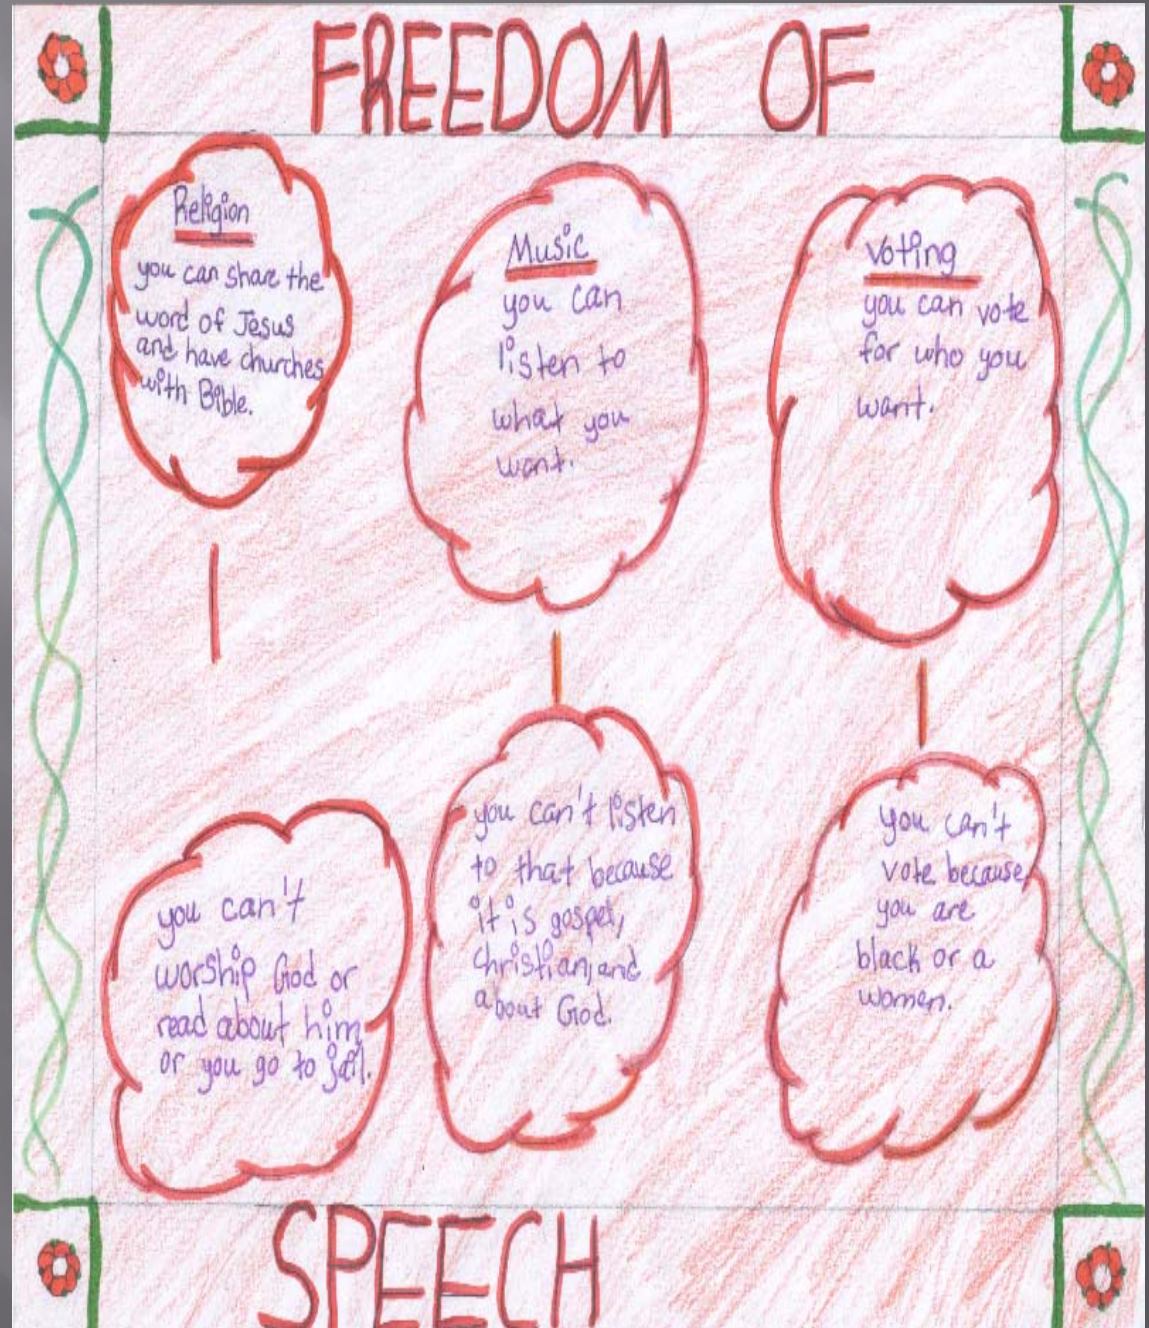 FREEDOM OF
Religion
you can share the
word of Jesus
and have churches
with Bible.
Music
you can
listen to
what you
want.
Voting
you can vote
for who you
want.
you can't
worship God or
read about him
or you go to jail.
you can't listen
to that because
it is gospel,
christian, and
about God.
you can't
vote because
you are
black or a
women.
SPEECH